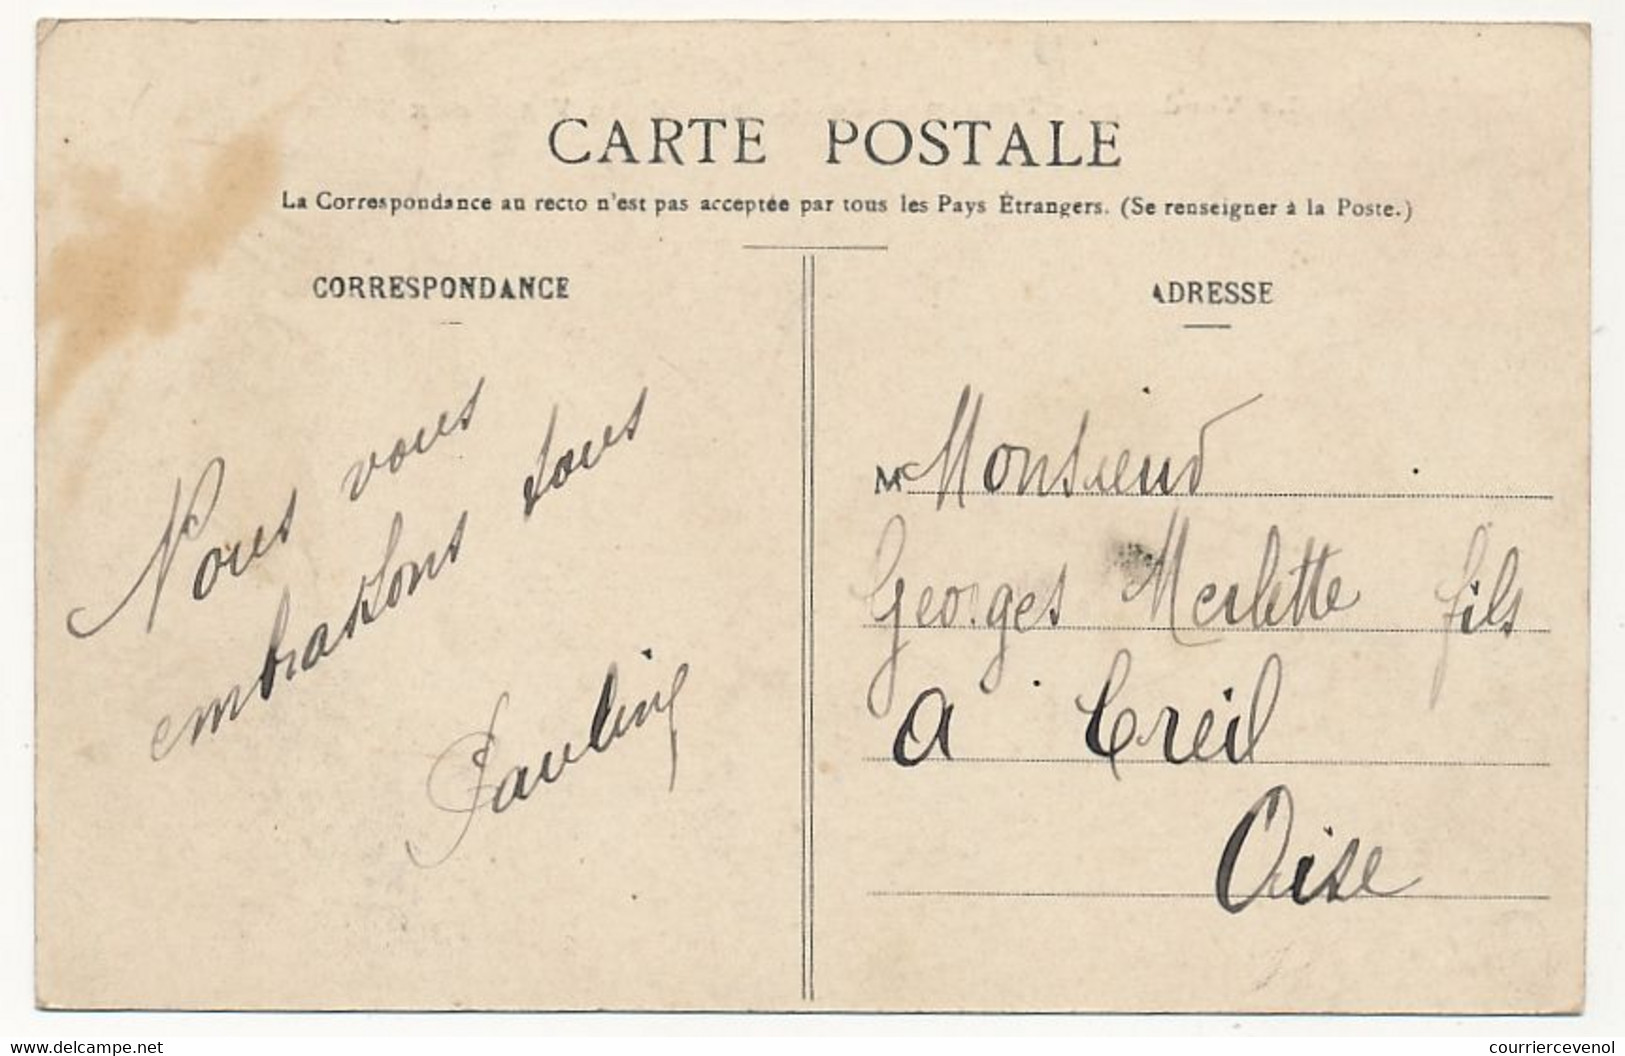 CARTE POSTALE
La Correspondance au recto n'est pas acceptée par tous les Pays Étrangers. (Se renseigner à la Poste.)
CORRESPONDANCE
Nous vous
embrassons tous
Pauline
ADRESSE
M Monsieur
Georges Merlette fils
a Creil
Oise
www.delcampe.net
courriercevenol